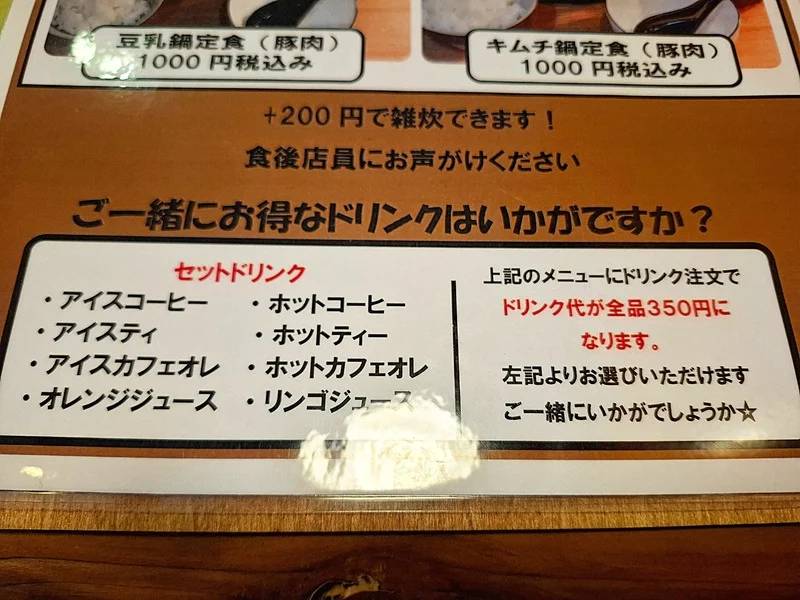 豆乳鍋定食（豚肉）
1000円税込み
キムチ鍋定食（豚肉）
1000円税込み
+200円で雑炊できます！
食後店員にお声がけください
ご一緒にお得なドリンクはいかがですか？
セットドリンク
・アイスコーヒー ・ホットコーヒー
・アイスティ ・ホットティー
・アイスカフェオレ ・ホットカフェオレ
・オレンジジュース ・リンゴジュース
上記のメニューにドリンク注文で
ドリンク代が全品350円に
なります。
左記よりお選びいただけます
ご一緒にいかがでしょうか☆